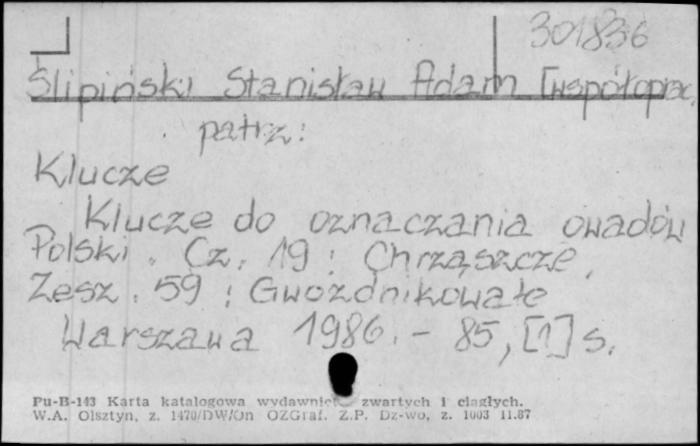 301836
Ślipiński Stanisław Adam [współoprac.
patrz:
Klucze
Klucze do oznaczania owadów
Polski. Cz. 19 : Chrząszcze.
Zesz. 59 : Gwozdnikowate
Warszawa 1986. - 85, [1] s.
Pu-B-143 Karta katalogowa wydawnict zwartych i ciągłych.
W.A. Olsztyn, z. 1470/DW/On OZGraf. Z.P. Dz-wo, z. 1003 11.87